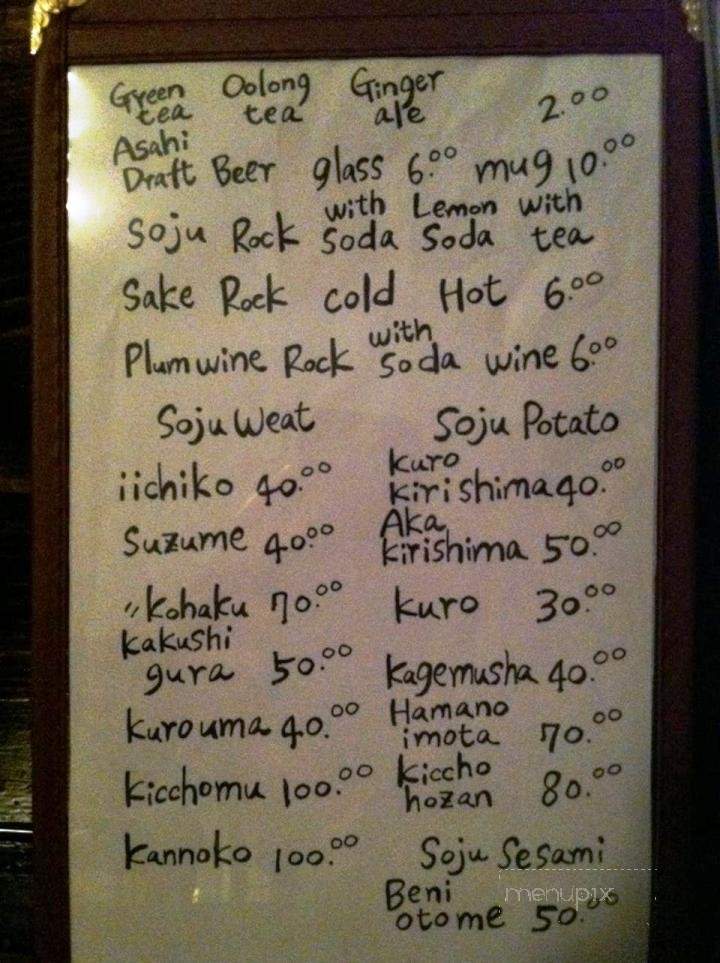 Green tea Oolong tea Ginger ale 2.00
Asahi Draft Beer glass 6.00 mug 10.00
Soju Rock with Soda Lemon Soda with tea
Sake Rock cold Hot 6.00
Plumwine Rock with Soda wine 6.00
Soju Weat Soju Potato
iichiko 40.00 kuro kirishima 40.00
Suzume 40.00 Aka kirishima 50.00
〃kohaku 70.00 kuro 30.00
kakushi gura 50.00 kagemusha 40.00
kurouma 40.00 Hamano imota 70.00
kicchomu 100.00 kiccho hozan 80.00
kannoko 100.00 Soju Sesami
Beni otome 50.00
menupix